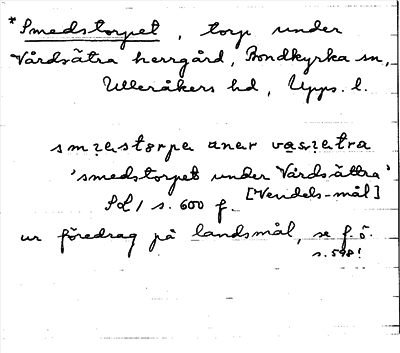 * Smedstorpet, torp under
Vårdsätra herrgård, Bondkyrka sn,
Ulleråkers hd, Upps. l.
'smedstorpet under Vårdsättra'
[Vendels-mål]
SL 1 s. 600 f.
ur föredrag på landsmål, se f. ö.
s. 598!